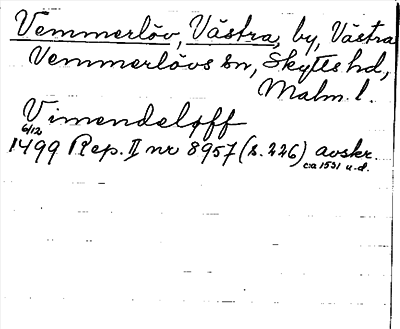 Vemmerlöv, Västra, by, Västra
Vemmerlövs sn, Skytts hd,
Malm. l.
Vimendeløff
6/12
1499 Rep. II nr 8957 (s. 226) avskr.
ca 1531 u.d.